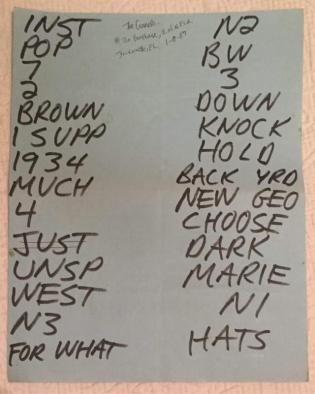 INST
POP
7
2
BROWN
I SUPP
1934
MUCH
4
JUST
UNSP
WEST
N3
FOR WHAT
The
@ The
1-8-89
N2
BW
3
DOWN
KNOCK
HOLD
BACK YRD
NEW GEO
CHOOSE
DARK
MARIE
N1
HATS